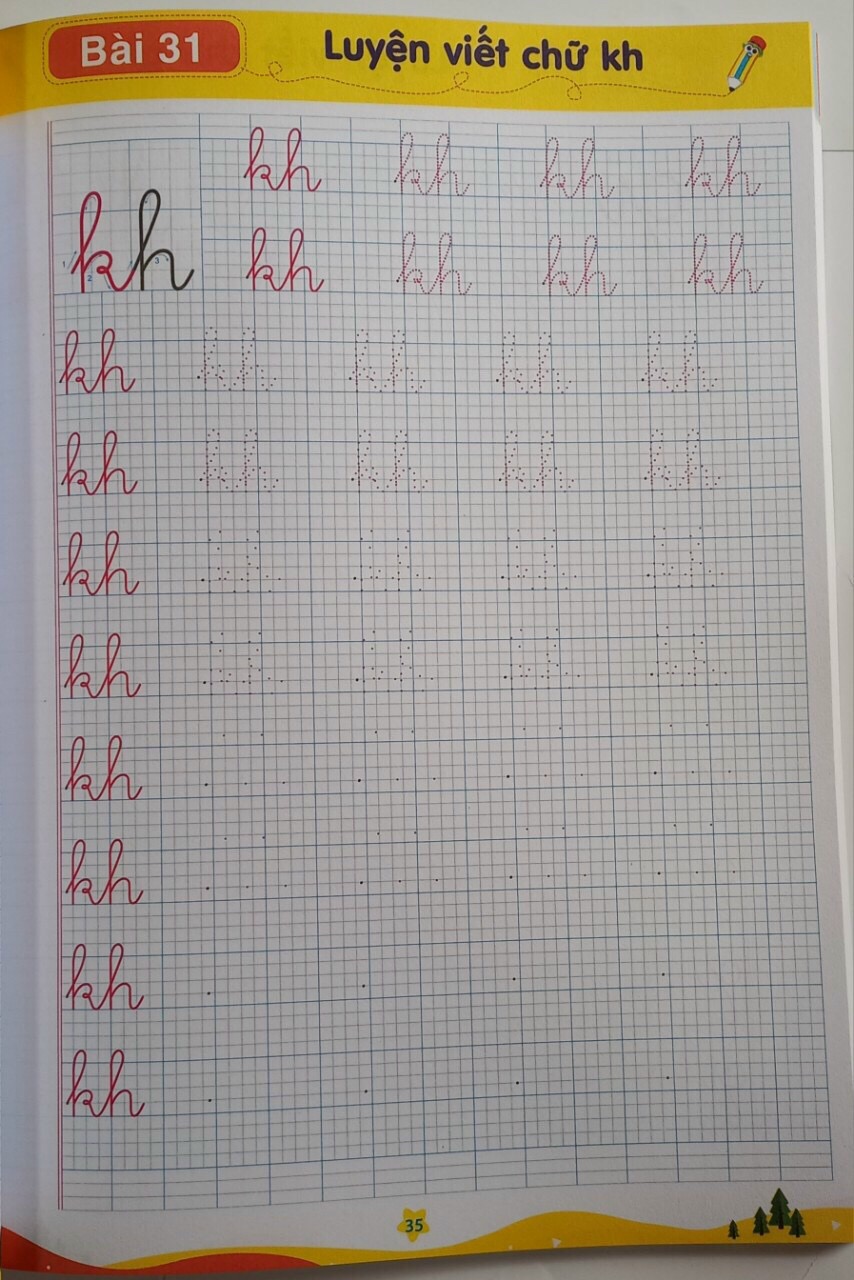 Bài 31
Luyện viết chữ kh
kh kh kh kh
kh 1 2 3
kh kh kh kh
kh kh kh kh kh
kh kh kh kh kh
kh kh kh kh kh
kh kh kh kh kh
kh
kh
kh
kh
35